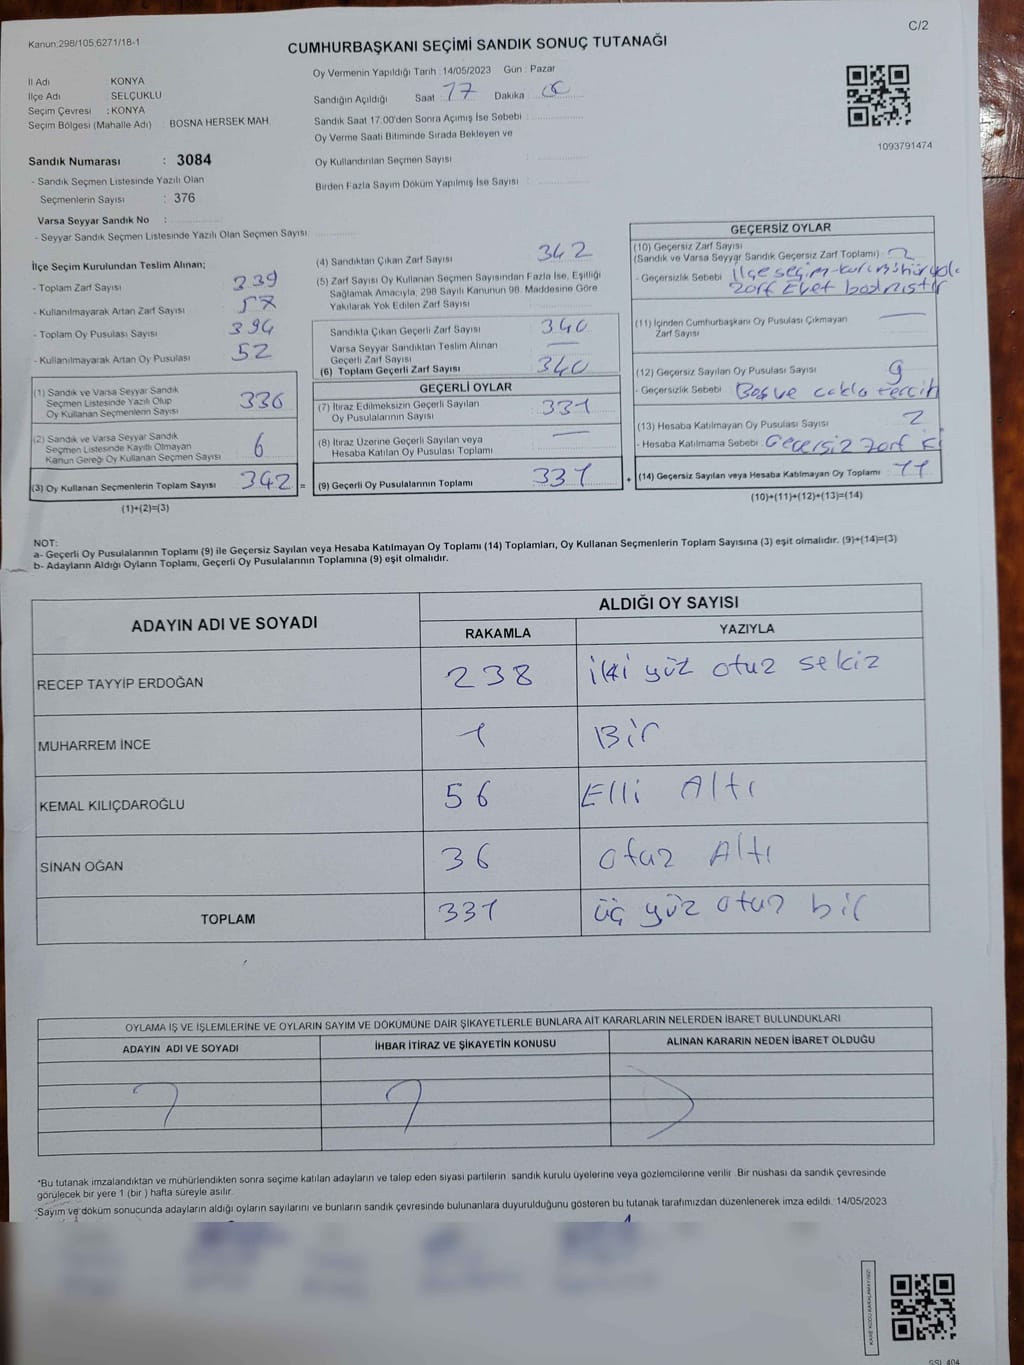 Kanun:298/105,6271/18-1
C/2
CUMHURBAŞKANI SEÇİMİ SANDIK SONUÇ TUTANAĞI
İl Adı : KONYA
İlçe Adı : SELÇUKLU
Seçim Çevresi : KONYA
Seçim Bölgesi (Mahalle Adı) : BOSNA HERSEK MAH.
Sandık Numarası : 3084
- Sandık Seçmen Listesinde Yazılı Olan
Seçmenlerin Sayısı : 376
Varsa Seyyar Sandık No :
- Seyyar Sandık Seçmen Listesinde Yazılı Olan Seçmen Sayısı:
Oy Vermenin Yapıldığı Tarih : 14/05/2023 Gün : Pazar
Sandığın Açıldığı Saat : 17 Dakika : 00
Sandık Saat 17.00'den Sonra Açımış İse Sebebi :
Oy Verme Saati Bitiminde Sırada Bekleyen ve
Oy Kullandırılan Seçmen Sayısı :
Birden Fazla Sayım Döküm Yapılmış İse Sayısı :
1093791474
İlçe Seçim Kurulundan Teslim Alınan;
- Toplam Zarf Sayısı 339
- Kullanılmayarak Artan Zarf Sayısı 57
- Toplam Oy Pusulası Sayısı 394
- Kullanılmayarak Artan Oy Pusulası 52
(1) Sandık ve Varsa Seyyar Sandık
Seçmen Listesinde Yazılı Olup
Oy Kullanan Seçmenlerin Sayısı 336
(2) Sandık ve Varsa Seyyar Sandık
Seçmen Listesinde Kayıtlı Olmayan
Kanun Gereği Oy Kullanan Seçmen Sayısı 6
(3) Oy Kullanan Seçmenlerin Toplam Sayısı 342 =
(1)+(2)=(3)
(4) Sandıktan Çıkan Zarf Sayısı 342
(5) Zarf Sayısı Oy Kullanan Seçmen Sayısından Fazla İse, Eşitliği
Sağlamak Amacıyla, 298 Sayılı Kanunun 98. Maddesine Göre
Yakılarak Yok Edilen Zarf Sayısı
Sandıkta Çıkan Geçerli Zarf Sayısı 340
Varsa Seyyar Sandıktan Teslim Alınan
Geçerli Zarf Sayısı —
(6) Toplam Geçerli Zarf Sayısı 340
GEÇERLİ OYLAR
(7) İtiraz Edilmeksizin Geçerli Sayılan
Oy Pusulalarının Sayısı 331
(8) İtiraz Üzerine Geçerli Sayılan veya
Hesaba Katılan Oy Pusulası Toplamı —
(9) Geçerli Oy Pusulalarının Toplamı 331 +
GEÇERSİZ OYLAR
(10) Geçersiz Zarf Sayısı
(Sandık ve Varsa Seyyar Sandık Geçersiz Zarf Toplamı) 2
- Geçersizlik Sebebi İlçe seçim
zarf Evet
(11) İçinden Cumhurbaşkanı Oy Pusulası Çıkmayan —
Zarf Sayısı
(12) Geçersiz Sayılan Oy Pusulası Sayısı 9
- Geçersizlik Sebebi Boş ve cokla tercih
(13) Hesaba Katılmayan Oy Pusulası Sayısı 2
- Hesaba Katılmama Sebebi Geçersiz zarf
(14) Geçersiz Sayılan veya Hesaba Katılmayan Oy Toplamı 11
(10)+(11)+(12)+(13)=(14)
NOT:
a- Geçerli Oy Pusulalarının Toplamı (9) ile Geçersiz Sayılan veya Hesaba Katılmayan Oy Toplamı (14) Toplamları, Oy Kullanan Seçmenlerin Toplam Sayısına (3) eşit olmalıdır. (9)+(14)=(3)
b- Adayların Aldığı Oyların Toplamı, Geçerli Oy Pusulalarının Toplamına (9) eşit olmalıdır.
ADAYIN ADI VE SOYADI
ALDIĞI OY SAYISI
RAKAMLA YAZIYLA
RECEP TAYYİP ERDOĞAN 238 iki yüz otuz sekiz
MUHARREM İNCE 1 Bir
KEMAL KILIÇDAROĞLU 56 Elli Altı
SİNAN OĞAN 36 otuz Altı
TOPLAM 331 üç yüz otuz bir
OYLAMA İŞ VE İŞLEMLERİNE VE OYLARIN SAYIM VE DÖKÜMÜNE DAİR ŞİKAYETLERLE BUNLARA AİT KARARLARIN NELERDEN İBARET BULUNDUKLARI
ADAYIN ADI VE SOYADI İHBAR İTİRAZ VE ŞİKAYETİN KONUSU ALINAN KARARIN NEDEN İBARET OLDUĞU
*Bu tutanak imzalandıktan ve mühürlendikten sonra seçime katılan adayların ve talep eden siyasi partilerin sandık kurulu üyelerine veya gözlemcilerine verilir. Bir nüshası da sandık çevresinde
görülecek bir yere 1 (bir ) hafta süreyle asılır.
*Sayım ve döküm sonucunda adayların aldığı oyların sayılarını ve bunların sandık çevresinde bulunanlara duyurulduğunu gösteren bu tutanak tarafımızdan düzenlenerek imza edildi. 14/05/2023
KARE KODU KARALAMAYINIZ!